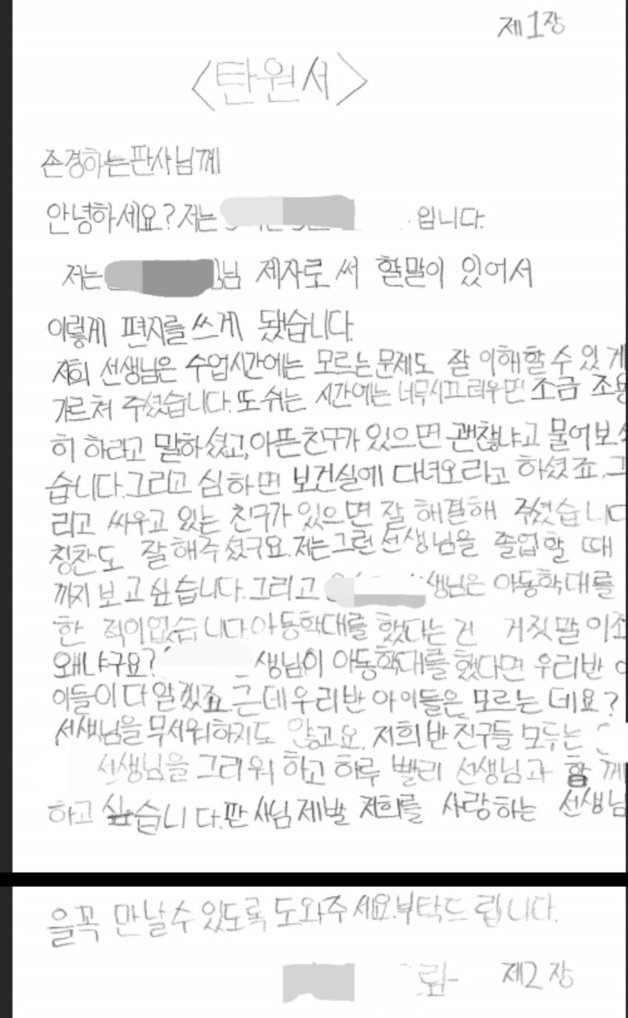 제1장
<탄원서>
존경하는판사님께
안녕하세요? 저는 입니다.
저는 님 제자로 써 할말이 있어서
이렇게 편지를 쓰게 됐습니다.
저희 선생님은 수업시간에는 모르는 문제도 잘 이해할 수 있게
가르쳐 주셨습니다. 또 쉬는 시간에는 너무시끄러우면 조금 조용
히 하라고 말하셨고, 아픈친구가 있으면 괜찮냐고 물어보셨
습니다. 그리고 심하면 보건실에 다녀오라고 하셨죠. 그
리고 싸우고 있는 친구가 있으면 잘 해결해 주셨습니다
칭찬도 잘해주셨구요. 저는그런선생님을 졸업할 때
까지 보고싶습니다. 그리고 생님은 아동학대를
한 적이없습니다. 아동학대를 했다는 건 거짓말이죠
왜냐구요? 생님이 아동학대를 했다면 우리반 아
이들이 다 알겠죠. 근데우리반 아이들은 모르는 데요?
선생님을 무서워하지도 않고요. 저희반친구들 모두는
선생님을 그리워 하고 하루 빨리 선생님과 함께
하고 싶습니다. 판사님 제발 저희를 사랑하는 선생님
을꼭 만날수 있도록 도와주세요. 부탁드립니다.
제2장